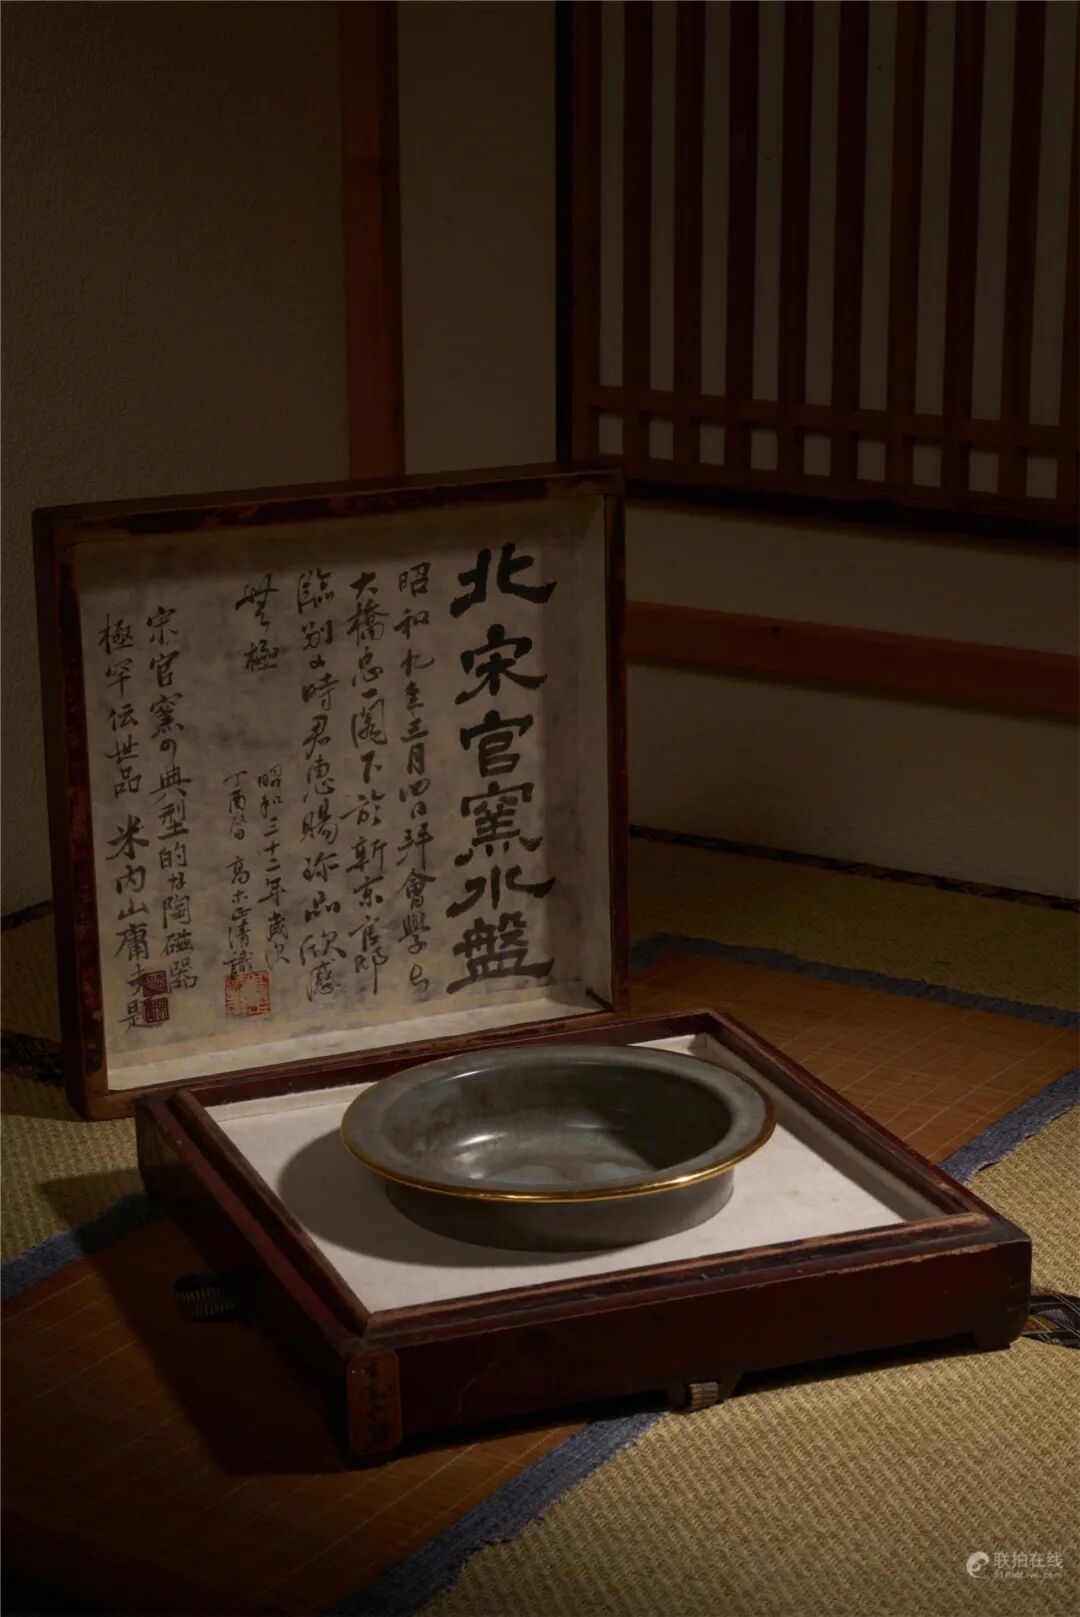 北宋官窯水盤
昭和九年三月四日拜會學長
大橋忠一閣下於新京官邸
臨別の時君惠賜珍品欣感
無極
昭和三十二年歲次
丁酉春 高木正清識
宋官窯の典型的な陶磁器
極罕伝世品 米内山庸夫題
联拍在线
51PaiLive.com